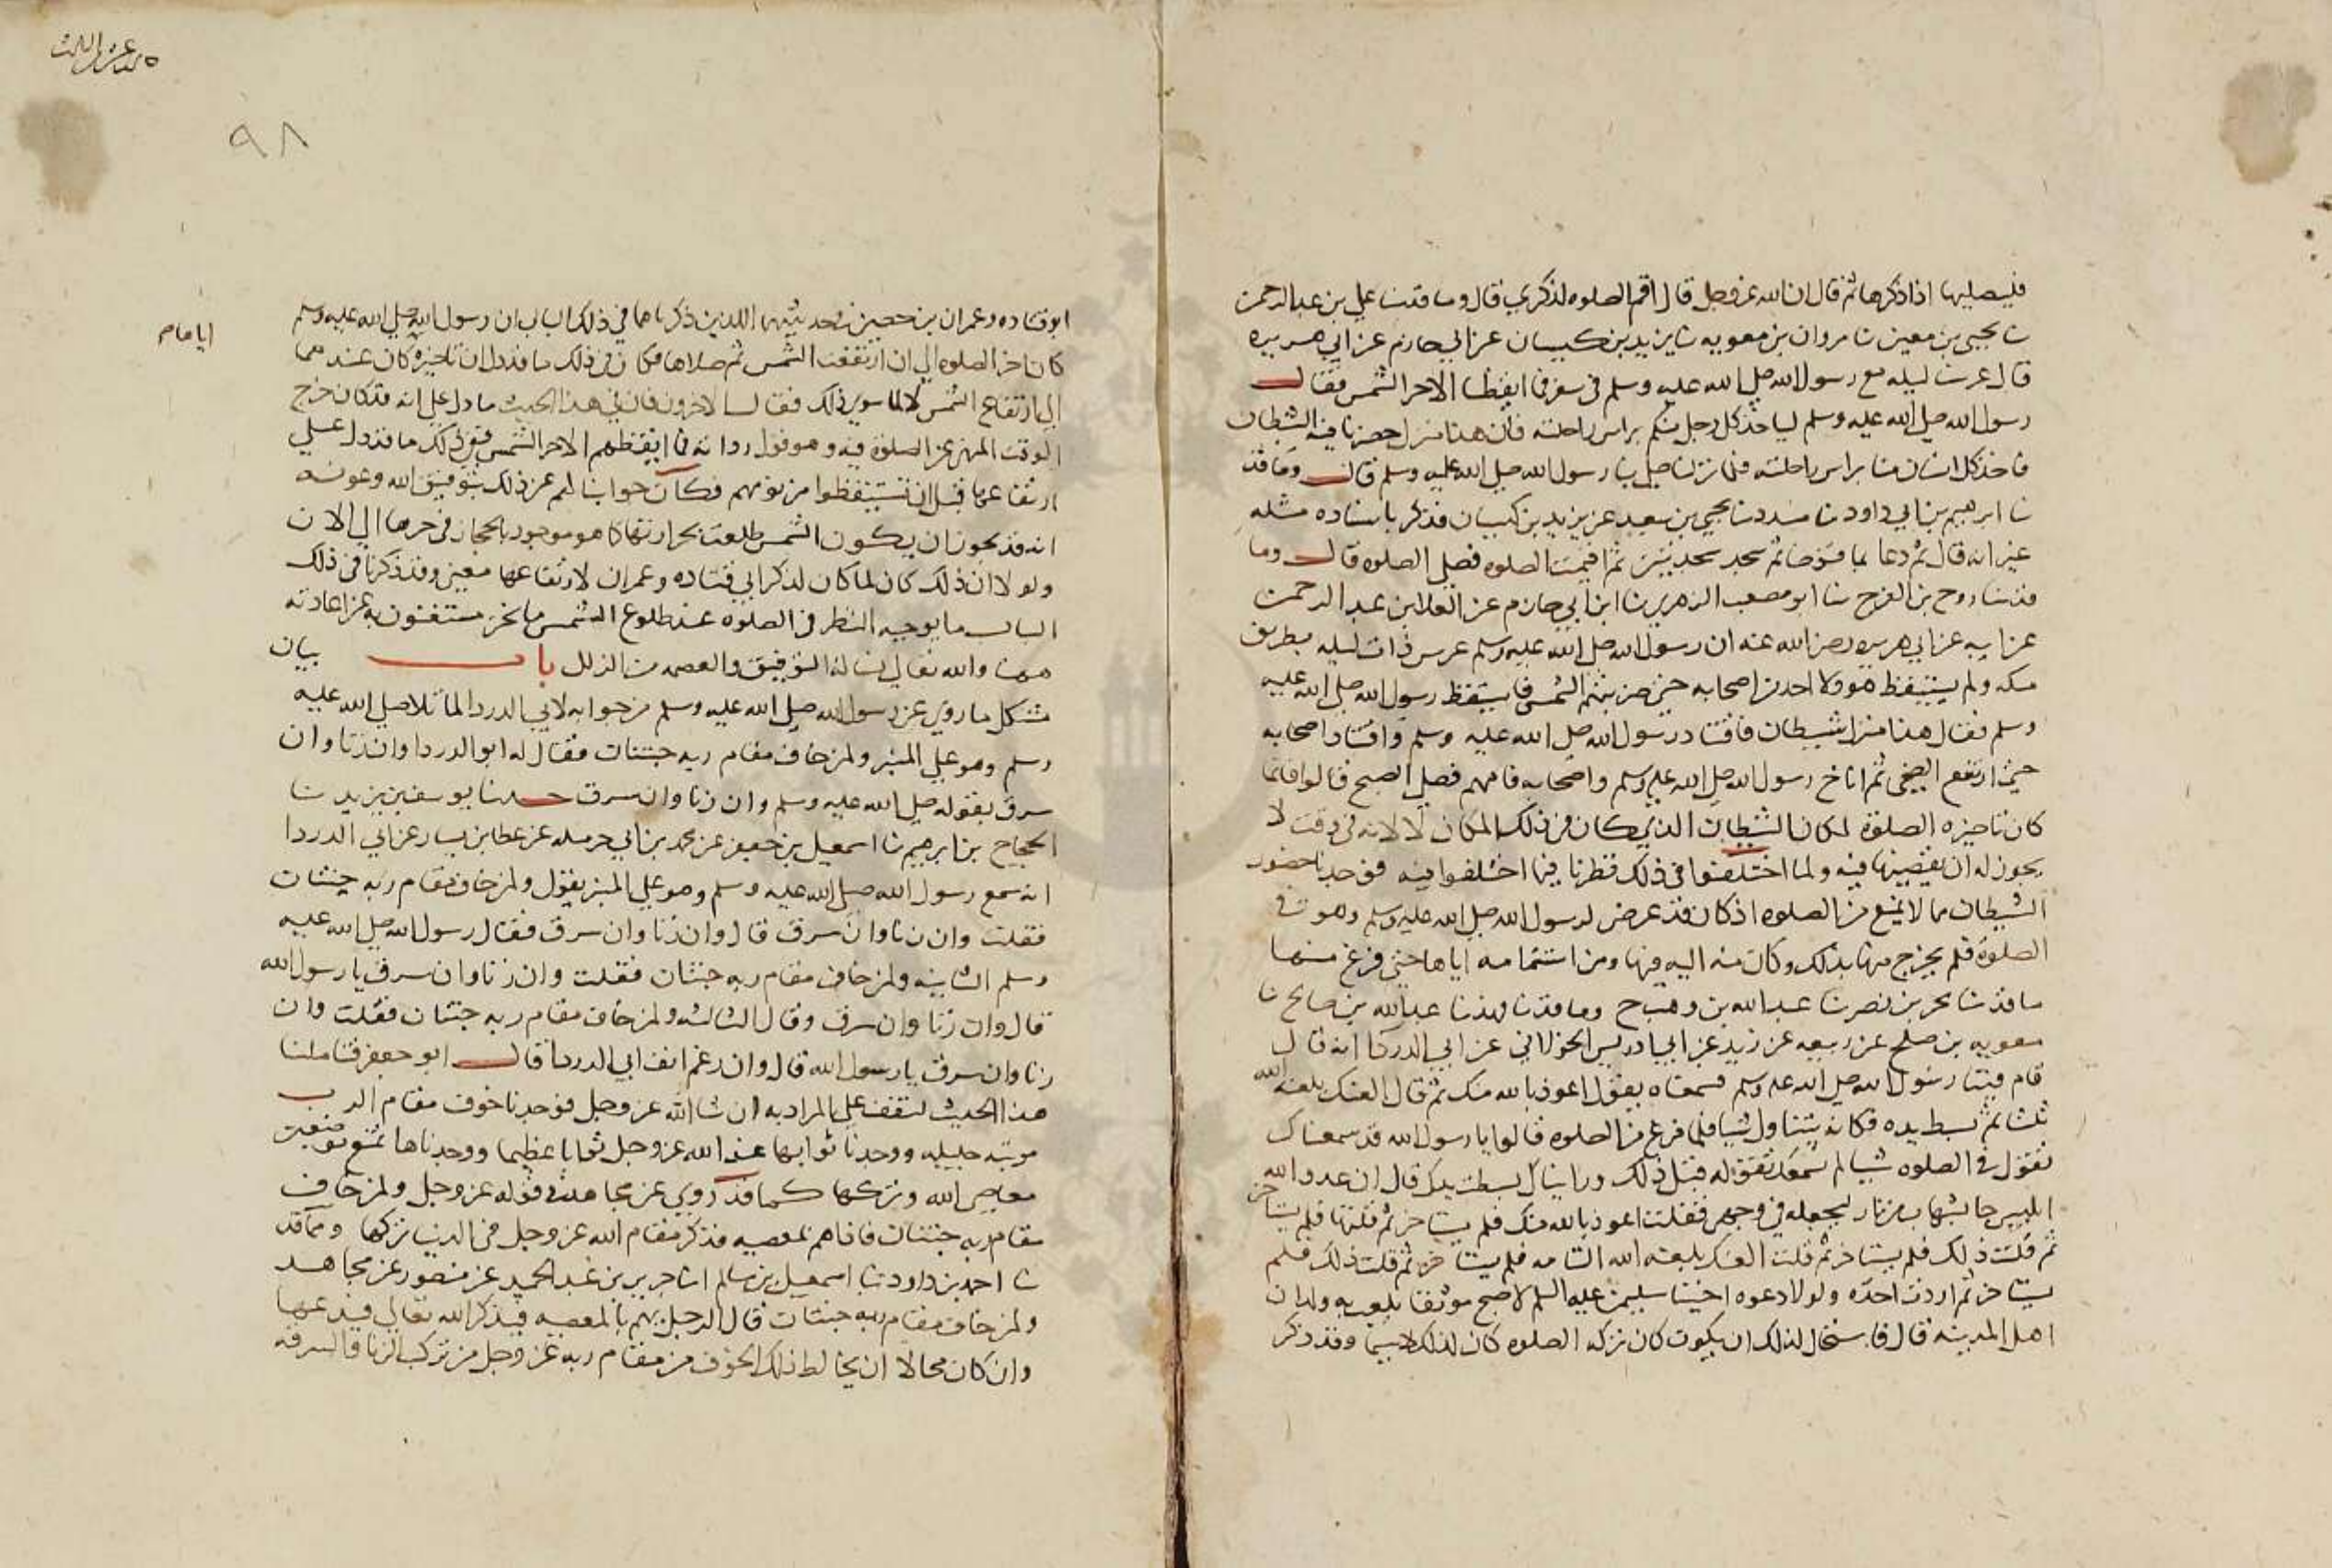 فليصليها اذا ذكرها ثم قال ان الله عز وجل قال اقم الصلوه لذكري قال وما قد ثنا علي بن عبد الرحمن
ثنا يحيى بن معين ثنا مروان بن معويه ثنا يزيد بن كيسان عن ابي حازم عن ابي هريره
قال عرسنا ليله مع رسول الله صلى الله عليه وسلم في سفر فما ايقظنا الا حر الشمس فقال
رسول الله صلى الله عليه وسلم لياخذ كل رجل منكم براس راحلته فان هذا منزل حضرنا فيه الشيطان
فاخذ كل انسان منا براس راحلته فلما نزلنا صلى بنا رسول الله صلى الله عليه وسلم قال وما قد
ثنا ابرهيم بن ابي داود ثنا مسدد ثنا يحيى بن سعيد عن يزيد بن كيسان فذكر باسناده مثله
غير انه قال ثم دعا بما فتوضا ثم سجد سجدتين ثم اقيمت الصلوه فصلى الصلوه قال وما
قد ثنا روح بن الفرج ثنا ابو مصعب الزهري ثنا ابن ابي حازم عن العلا بن عبد الرحمن
عن ابيه عن ابي هريره رضي الله عنه ان رسول الله صلى الله عليه وسلم عرس ذات ليله بطريق
مكه ولم يستيقظ هو ولا احد من اصحابه حتى ضربتهم الشمس فاستيقظ رسول الله صلى الله عليه
وسلم فقال هذا منزل شيطان فاقتاد رسول الله صلى الله عليه وسلم واقتاد اصحابه
حتى ارتفع الضحى ثم اناخ رسول الله صلى الله عليه وسلم واصحابه فامهم فصلى الصبح قالوا فانما
كان تاخيره الصلوة لمكان الشيطان الذي كان في ذلك المكان لا لانه في وقت لا
يجوز له ان يقضيها فيه ولما اختلفوا في ذلك نظرنا فيما اختلفوا فيه فوجدنا حضور
الشيطان مما لا يمنع من الصلوه اذ كان قد عرض لرسول الله صلى الله عليه وسلم وهو في
الصلوة فلم يخرج منها بذلك وكان منه اليه فيها ومن استتمامه اياها حتى فرغ منها
ما قد ثنا بحر بن نصر ثنا عبد الله بن وهب ح وما قد ثنا فهد ثنا عبد الله بن صالح ثنا
معويه بن صلح عن ربيعه بن زيد عن ابي ادريس الخولاني عن ابي الدردا انه قال
قام فينا رسول الله صلى الله عليه وسلم فسمعناه يقول اعوذ بالله منك ثم قال العنك بلعنة الله
ثلثا ثم بسط يده فكانه يتناول شيا فلما فرغ من الصلوه قالوا يا رسول الله قد سمعناك
تقول في الصلوه شيا لم نسمعك تقوله قبل ذلك ورايناك بسطت يدك قال ان عدو الله
ابليس جا بشهاب من نار ليجعله في وجهي فقلت اعوذ بالله منك فلم يستاخر ثم قلتها فلم يستاخر
ثم قلت ذلك فلم يستاخر ثم قلت العنك بلعنه الله التامه فلم يستاخر ثم قلت ذلك فلم
يستاخر ثم اردت اخذه ولولا دعوه اخينا سليمن عليه السلم لاصبح موثقا يلعب به ولدان
اهل المدينه قال فاستحال لذلك ان يكون كان تركه الصلوه كان لذلك لا سيما وقد ذكر
٩٨
ابو قتاده وعمران بن حصين في حديثيهما اللذين ذكرناهما في ذلك الباب ان رسول الله صلى الله عليه وسلم
كان اخر الصلوه الى ان ارتفعت الشمس ثم صلاها فكان في ذلك ما قد دل ان تاخيره كان عندهما
اياها
الى ارتفاع الشمس لا لما سوى ذلك فقال الاخرون فان في هذا الحديث ما دل على انه قد كان خرج
الوقت المنهي عن الصلوة فيه وهو قول رواته فما ايقظهم الا حر الشمس ففي ذلك ما قد دل على
ارتفاعها قبل ان يستيقظوا من نومهم فكان جوابنا لهم عن ذلك بتوفيق الله وعونه
انه قد يجوز ان يكون الشمس طلعت بحرارتها كما هو موجود بالحجاز في حرها الى الان
ولولا ان ذلك كان لما كان لذكر ابي قتاده وعمران لارتفاعها معنى وقد ذكرنا في ذلك
الباب ما يوجبه النظر في الصلوه عند طلوع الشمس ما نحن مستغنون به عن اعادته
ههنا والله تعالى نساله التوفيق والعصمه من الزلل باب بيان
مشكل ما روي عن رسول الله صلى الله عليه وسلم من جوابه لابي الدردا لما تلا صلى الله عليه
وسلم وهو على المنبر ولمن خاف مقام ربه جنتان فقال له ابو الدردا وان زنا وان
سرق بقوله صلى الله عليه وسلم وان زنا وان سرق حدثنا يوسف بن يزيد ثنا
الحجاج بن ابرهيم ثنا اسمعيل بن جعفر عن محمد بن ابي حرمله عن عطا بن يسار عن ابي الدردا
انه سمع رسول الله صلى الله عليه وسلم وهو على المنبر يقول ولمن خاف مقام ربه جنتان
فقلت وان زنا وان سرق قال وان زنا وان سرق فقال رسول الله صلى الله عليه
وسلم الثانيه ولمن خاف مقام ربه جنتان فقلت وان زنا وان سرق يا رسول الله
قال وان زنا وان سرق وقال الثالثه ولمن خاف مقام ربه جنتان فقلت وان
زنا وان سرق يا رسول الله قال وان رغم انف ابي الدردا قال ابو جعفر فتاملنا
هذا الحديث لنقف على المراد به ان شا الله عز وجل فوجدنا خوف مقام الرب
مرتبه جليله ووجدنا ثوابها عند الله عز وجل ثوابا عظيما ووجدناها تمنع من
معاصي الله وتركها كما قد روي عن مجاهد في قوله عز وجل ولمن خاف
مقام ربه جنتان فاذا هم بمعصيه فذكر مقام الله عز وجل في الدنيا تركها وما قد
ثنا احمد بن داود ثنا اسمعيل بن سالم انا جرير بن عبد الحميد عن منصور عن مجاهد
ولمن خاف مقام ربه جنتان قال الرجل يهم بالمعصيه فيذكر الله تعالى فيدعها
وان كان محالا ان يخالط ذلك الخوف من مقام ربه عز وجل من تركب الزنا والسرقه